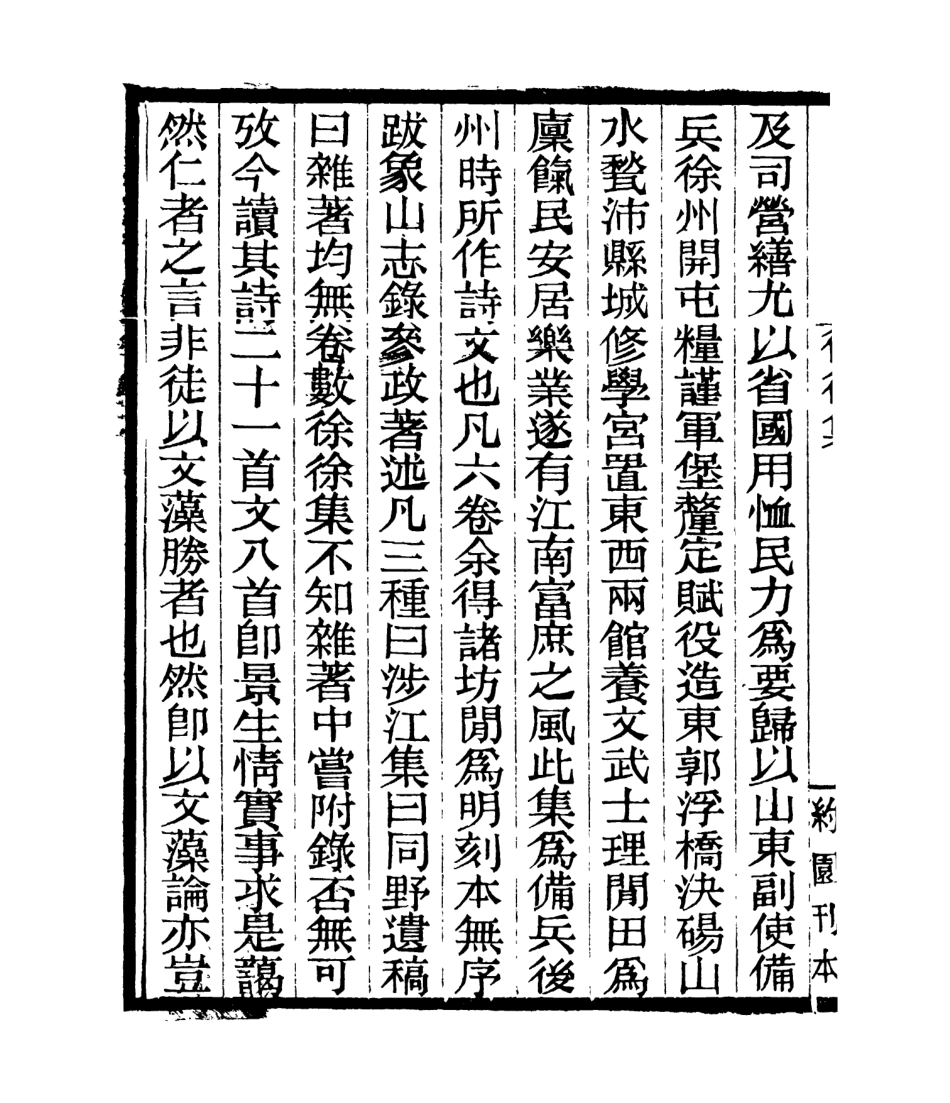 及司營繕尤以省國用恤民力爲要歸以山東副使備
兵徐州開屯糧謹軍堡釐定賦役造東郭浮橋決碭山
水甃沛縣城修學宮置東西兩館養文武士理閒田爲
廩餼民安居樂業遂有江南富庶之風此集爲備兵後
州時所作詩文也凡六卷余得諸坊閒爲明刻本無序
跋象山志錄叅政著述凡三種曰涉江集曰同野遺稿
曰雜著均無卷數徐徐集不知雜著中嘗附錄否無可
攷今讀其詩二十一首文八首卽景生情實事求是藹
然仁者之言非徒以文藻勝者也然卽以文藻論亦豈
約園刊本